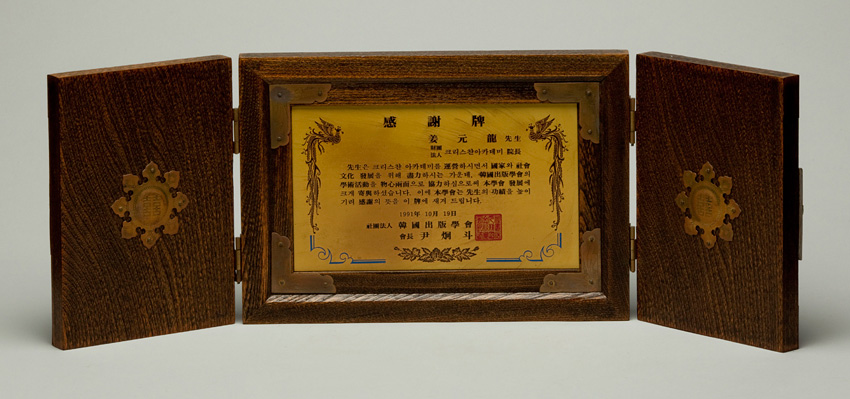 感謝牌
姜元龍 先生
財團法人 크리스챤아카데미 院長
先生은 크리스챤 아카데미를 運營하시면서 國家와 社會
文化 發展을 위해 盡力하시는 가운데, 韓國出版學會의
學術活動을 物心兩面으로 協力하심으로써 本學會 發展에
크게 寄與하셨습니다. 이에 本學會는 先生의 功績을 높이
기려 感謝의 뜻을 이 牌에 새겨 드립니다.
1991年 10月 19日
社團法人 韓國出版學會
會長 尹炯斗